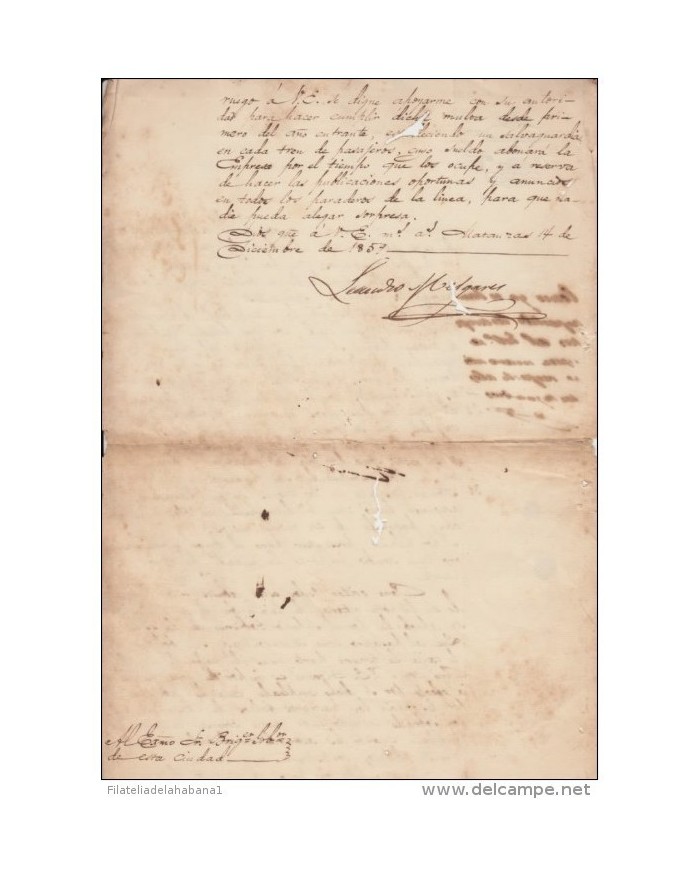 ruego á V.E. se digne apoyarme con su autori-
dad para hacer cumplir dicha multa desde pri-
mero del año entrante, estableciendo un salvaguardia
en cada tren de pasajeros, cuyo sueldo abonará la
Empresa por el tiempo que los ocupe, y á reserva
de hacer las publicaciones oportunas y anuncios
en todos los paraderos de la linea, para que na-
die pueda alegar sorpresa.
Dios gue á V.E. ms. as. Matanzas 14 de
Diciembre de 185
Al Exmo Sr. Brigr. Gobor.
de esta ciudad
Filateliadelahabana1
www.delcampe.net